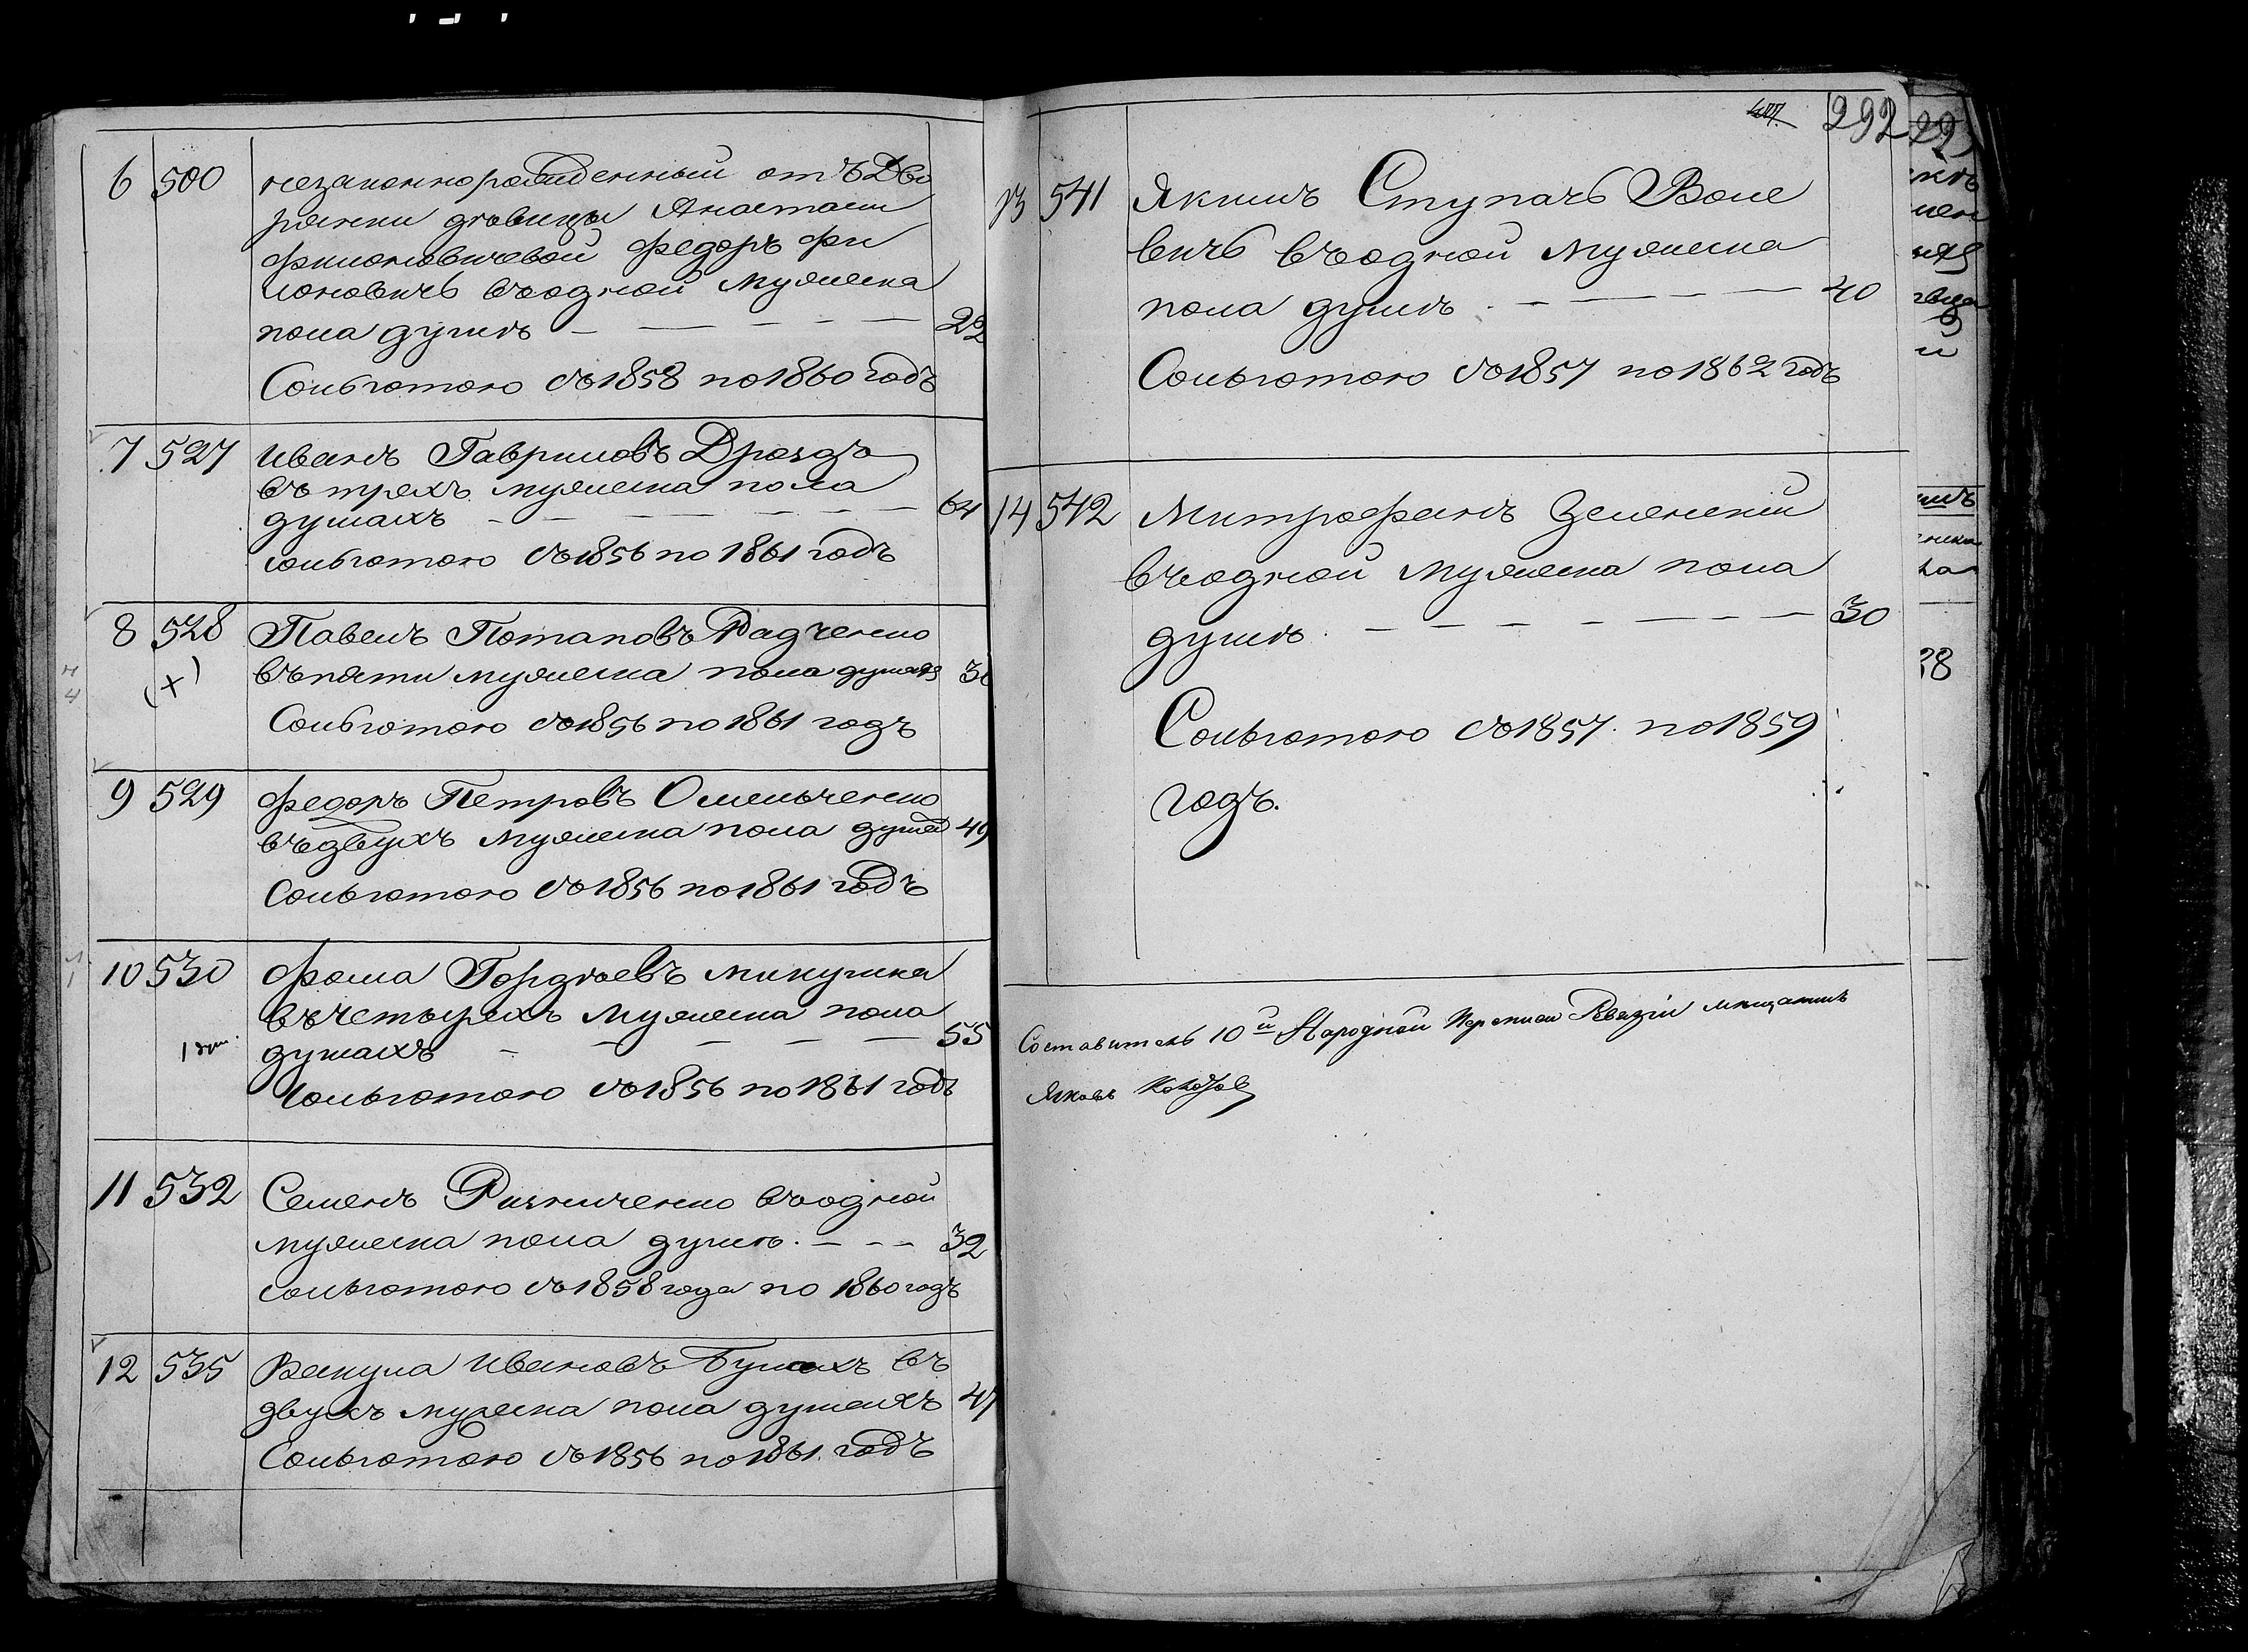 6 500 незаконнорожденный отъ Дво
рянки дѣвицы Анастасiи
Филоновичевой Федоръ Фи
лоновичъ въ одной мужеска
пола душѣ 22
Со льготою съ 1858 по 1860 годъ
7 527 Иванъ Гавриловъ Дроздъ
въ трехъ мужеска пола
душахъ 64
со льготою съ 1856 по 1861 годъ
8 528 Павелъ Потаповъ Радченко
(х) въ пяти мужеска пола душахъ
Со льготою съ 1856 по 1861 годъ
9 529 Федоръ Петровъ Омельченко
въ двухъ мужеска пола душахъ 49
Со льготою съ 1856 по 1861 годъ
10 530 Фома Гордѣевъ Микушка
въ четырехъ мужеска пола
1 душахъ 55
Со льготою съ 1856 по 1861 годъ
11 532 Семенъ Резниченко въ одной
мужеска пола душѣ. 32
со льготою съ 1858 года по 1860 годъ
12 535 Вакула Ивановъ въ
двухъ мужеска пола душахъ 47
Со льготою съ 1856 по 1861. годъ
292
13 541 Якимъ Ступачъ Воле
вичъ въ одной мужеска
пола душѣ. 40
Со льготою съ 1857 по 1862 годъ
14 542 Митрофанъ Зеленскiй
въ одной мужеска пола
душѣ. 30
Со льготою съ 1857. по 1859
годъ.
Составитель 10й Народной Переписи Ревизiи мещанинъ
Яковъ